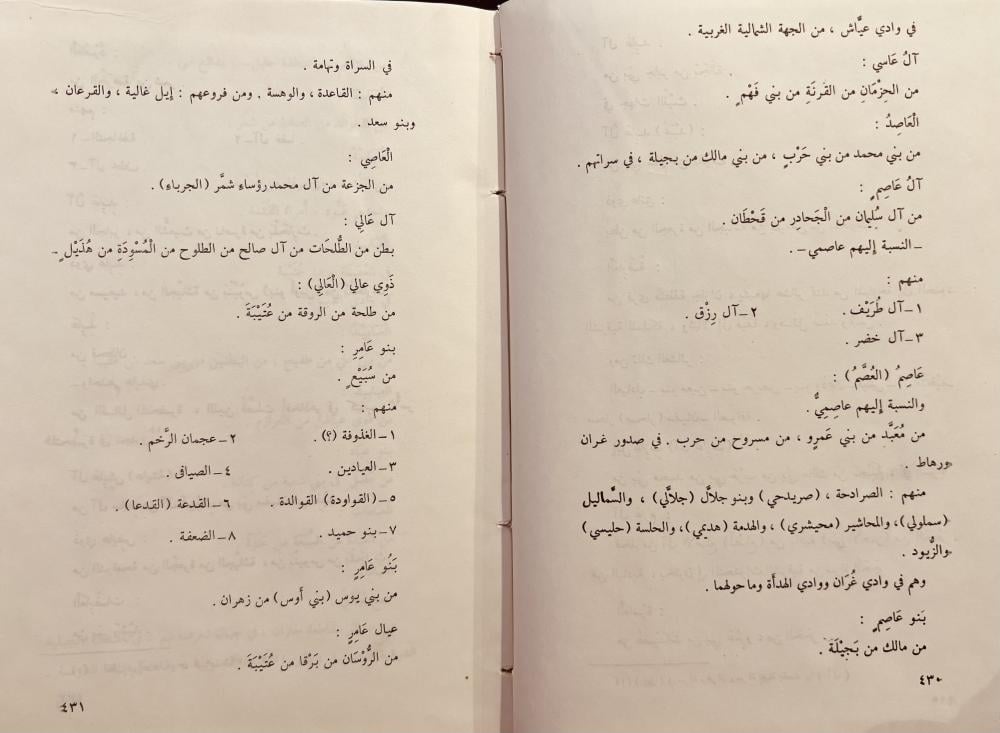 في وادي عيَّاش ، من الجهة الشمالية الغربية .
آلُ عَاسي :
من الحِزْمَانِ من القَرنَةِ من بني فَهْمٍ .
الْعَاصِدُ :
من بني محمد من بني حَرْبٍ ، من بني مالك من بجيلة ، في سراتهم .
آلُ عَاصِمٍ :
من آل سُلِيمان من الْجَحادِر من قَحْطَان .
ـ النسبة إليهم عاصمي ـ .
منهم :
١ـ آل طُرَيْف . ٢ـ آل رِزْق .
٣ـ آل خضر .
عَاصِمُ (العُصَّمُ) :
والنسبة إليهم عاصِمِيُّ .
من مُعَبَّد من بني عَمرٍو ، من مسروح من حرب . في صدور غران
ورهاط .
منهم : الصرادحة ، (صريدحي) وبنو جلاَّل (جلاَّلي) ، والسَّماليل
(سملولي) ، والمحاشير (محيشري) ، والهدمة (هديمي) ، والحلسة (حليسي)
والزُّيود .
وهم في وادي غُرَان ووادي الهدأة وماحولهما .
بَنو عَاصِمٍ :
من مالك من بَجيْلَة .
٤٣٠
في السراة وتهامة .
منهم : القاعدة ، والوهسة . ومن فروعهم : إبل غالية ، والقرعان ،
وبنو سعد .
الْعَاصِي :
من الجزعة من آل محمد رؤساءِ شمَّر (الجرباءِ) .
آل عَالِي :
بطن من الطُّلحَات من آل صالح من الطلوح من الْمُسْوِدَةِ من هُذَيْلٍ .
ذَوِي عالي (الْعَالِي) :
من طلحة من الروقة من عُتَيْبَةَ .
بنو عَامِرِ :
من سُبَيْعٍ .
منهم :
١ـ الغذوفة (؟) . ٢ـ عجمان الرَّخم .
٣ـ العبادين . ٤ـ الصيافى .
٥ـ (القواودة) القوالدة . ٦ـ القدعة (القدعا) .
٧ـ بنو حميد . ٨ـ الضعفة .
بَنُو عَامِرٍ :
من بني يوس (بني أَوس) من زهران .
عيال عَامِرٍ :
من الرُّوْسَان من بَرْقا من عُتَيْبَةَ .
٤٣١